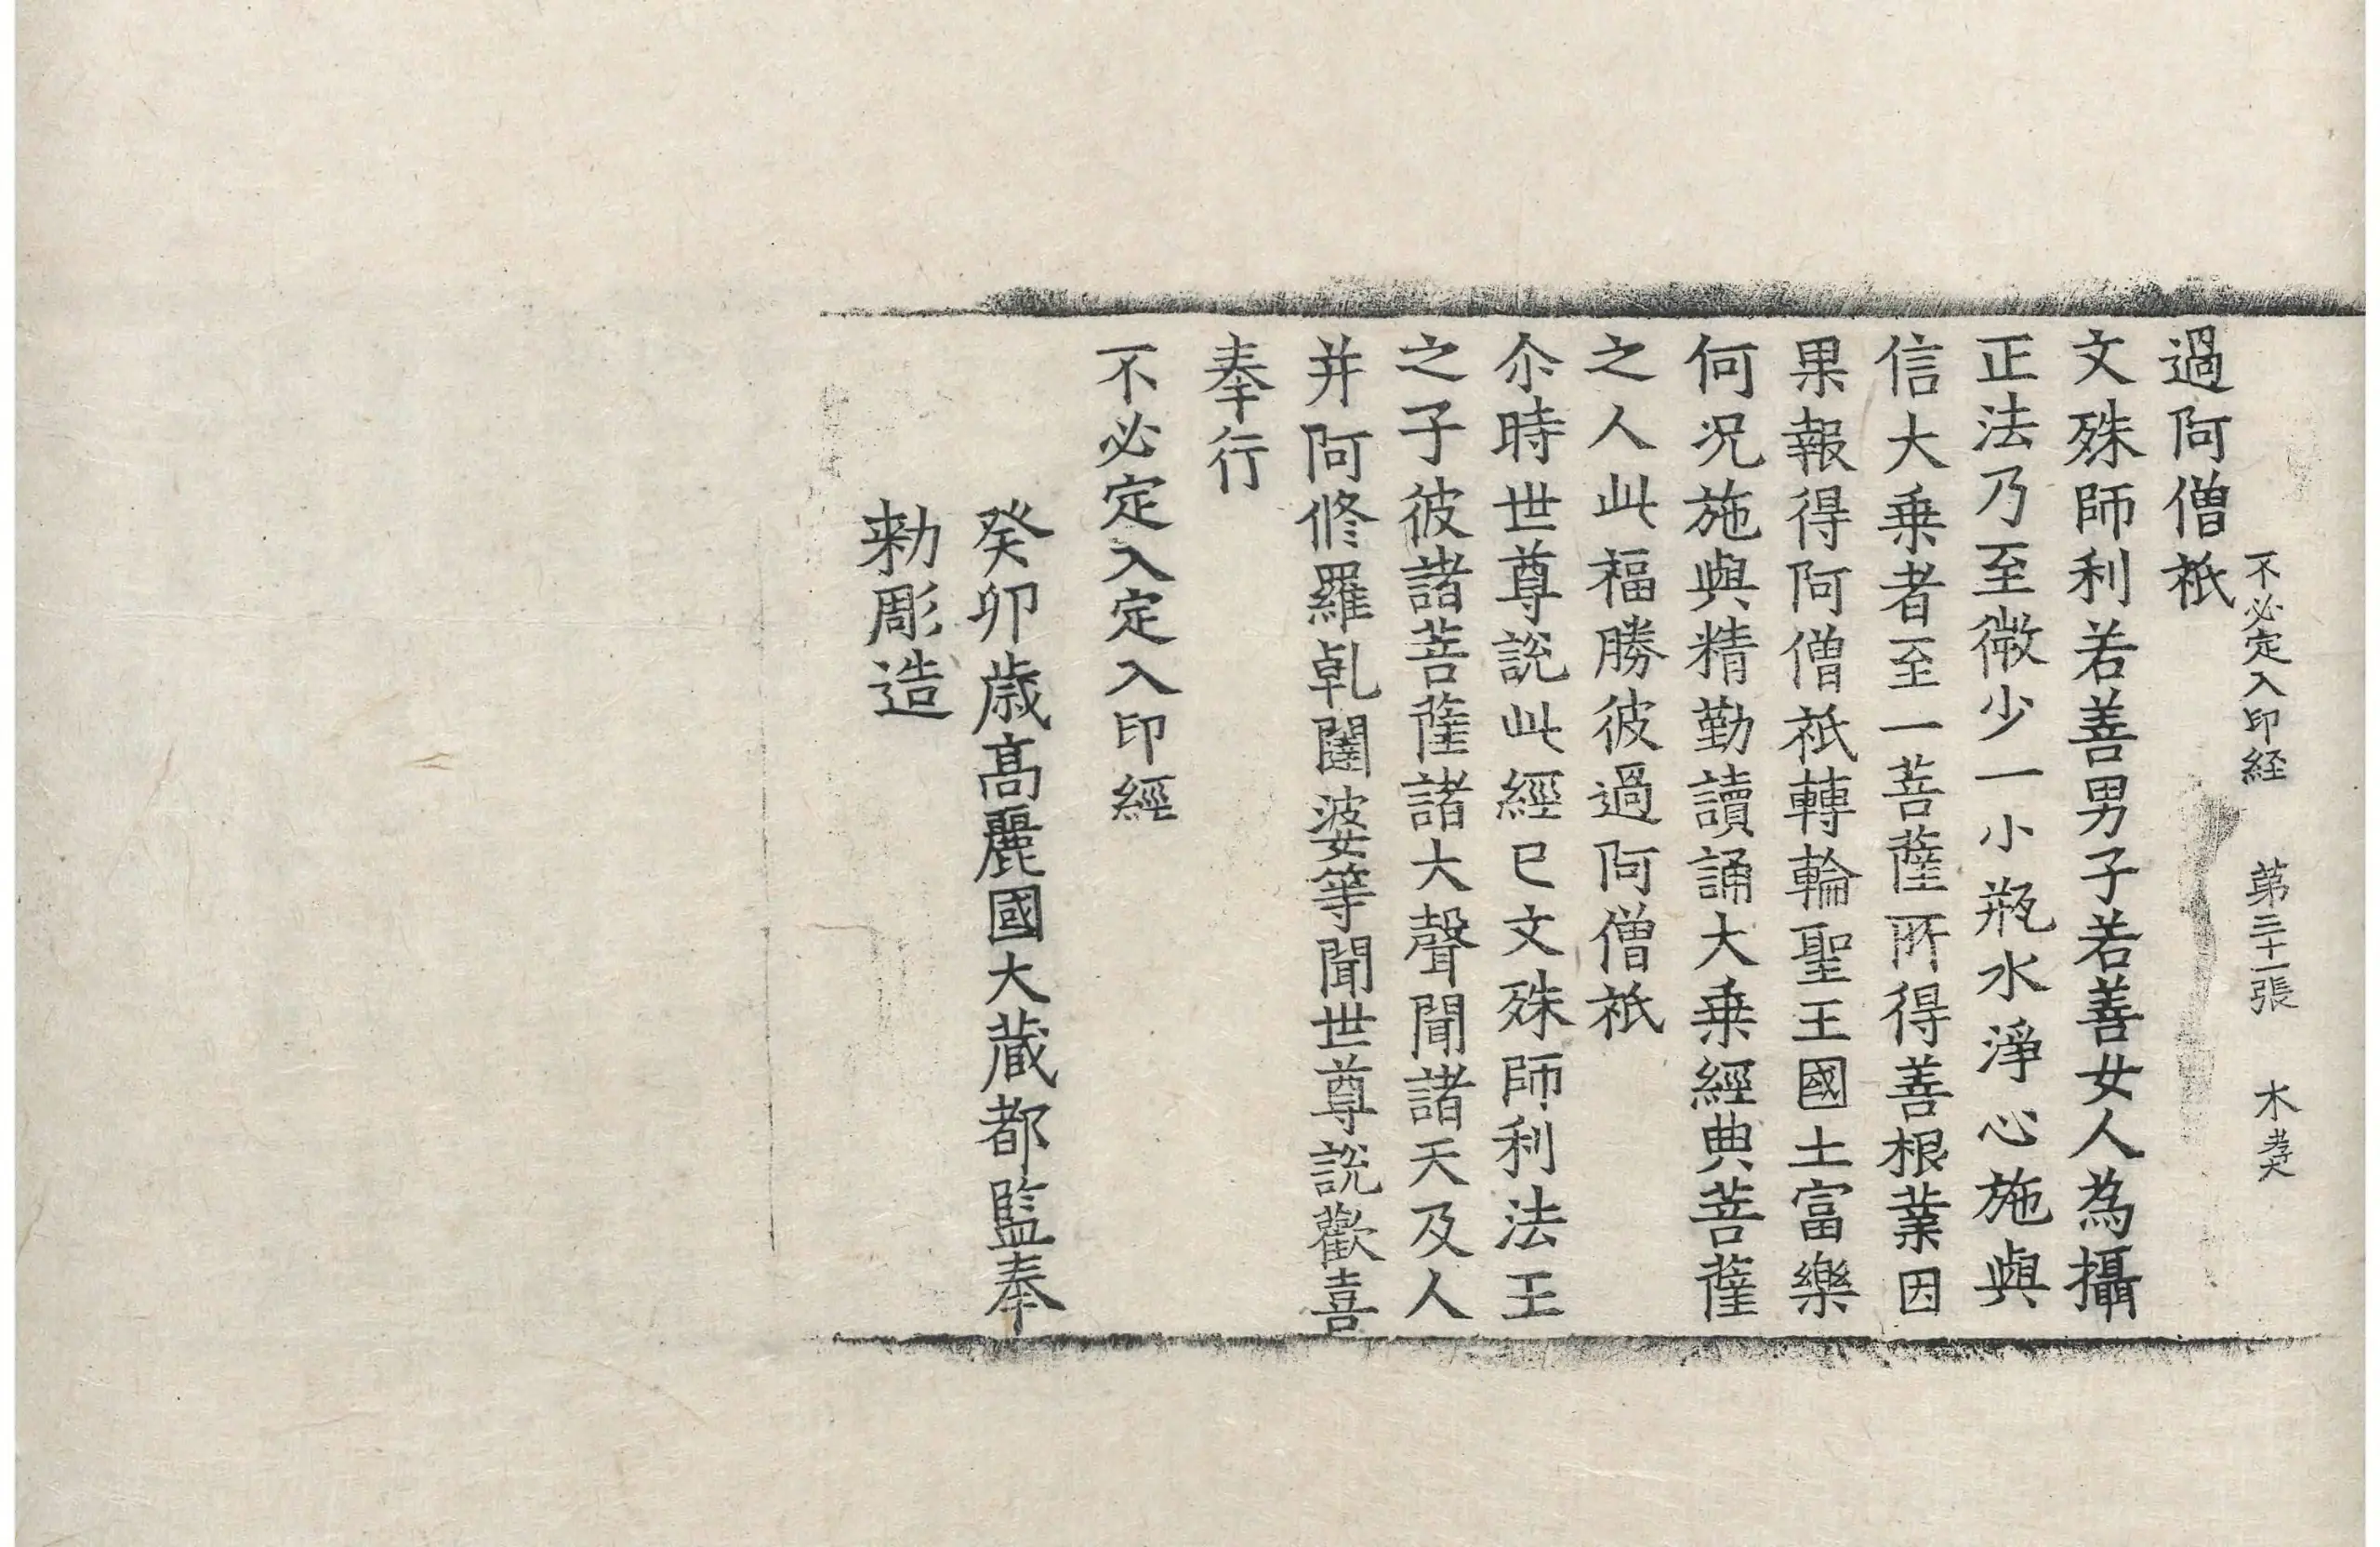 不必定入印経　第三十一張　木
過阿僧祇
文殊師利若善男子若善女人為攝
正法乃至微少一小瓶水淨心施與
信大乗者至一菩薩所得善根業因
果報得阿僧祇轉輪聖王國土富樂
何况施與精勤讀誦大乗經典菩薩
之人此福勝彼過阿僧祇
尒時世尊說此經已文殊師利法王
之子彼諸菩薩諸大聲聞諸天及人
并阿修羅乹闥婆等聞世尊說歡喜
奉行
不必定入定入印經
癸卯歳髙麗國大蔵都監奉
勑彫造